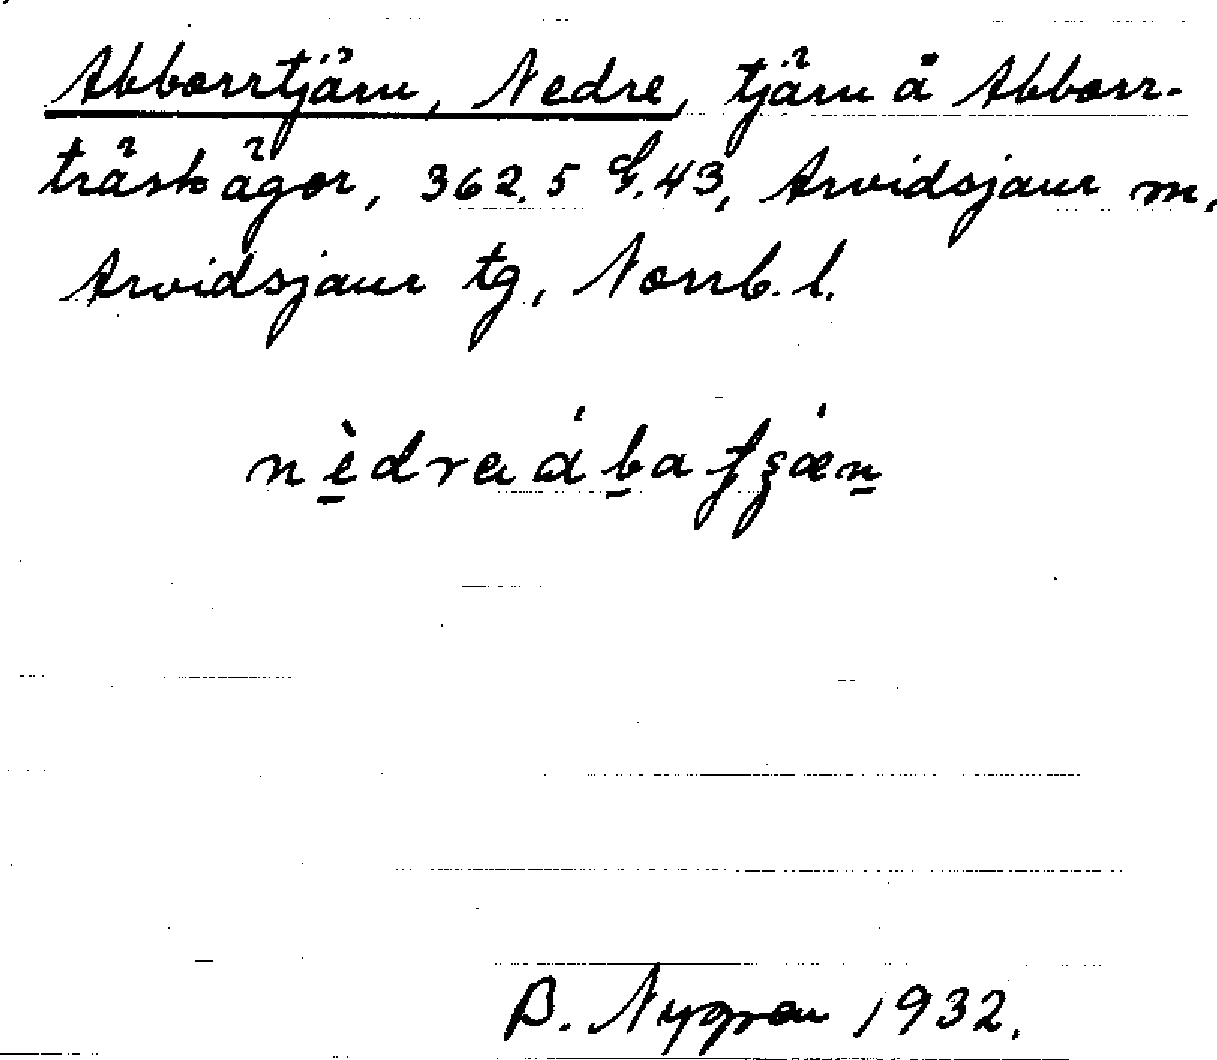 Abborrtjärn, Nedre, tjärn å Abborr-
träskägor, 362.5 G.43, Arvidsjaur sn,
Arvidsjaur tg, Norrb. l.
B. Nygren 1932.